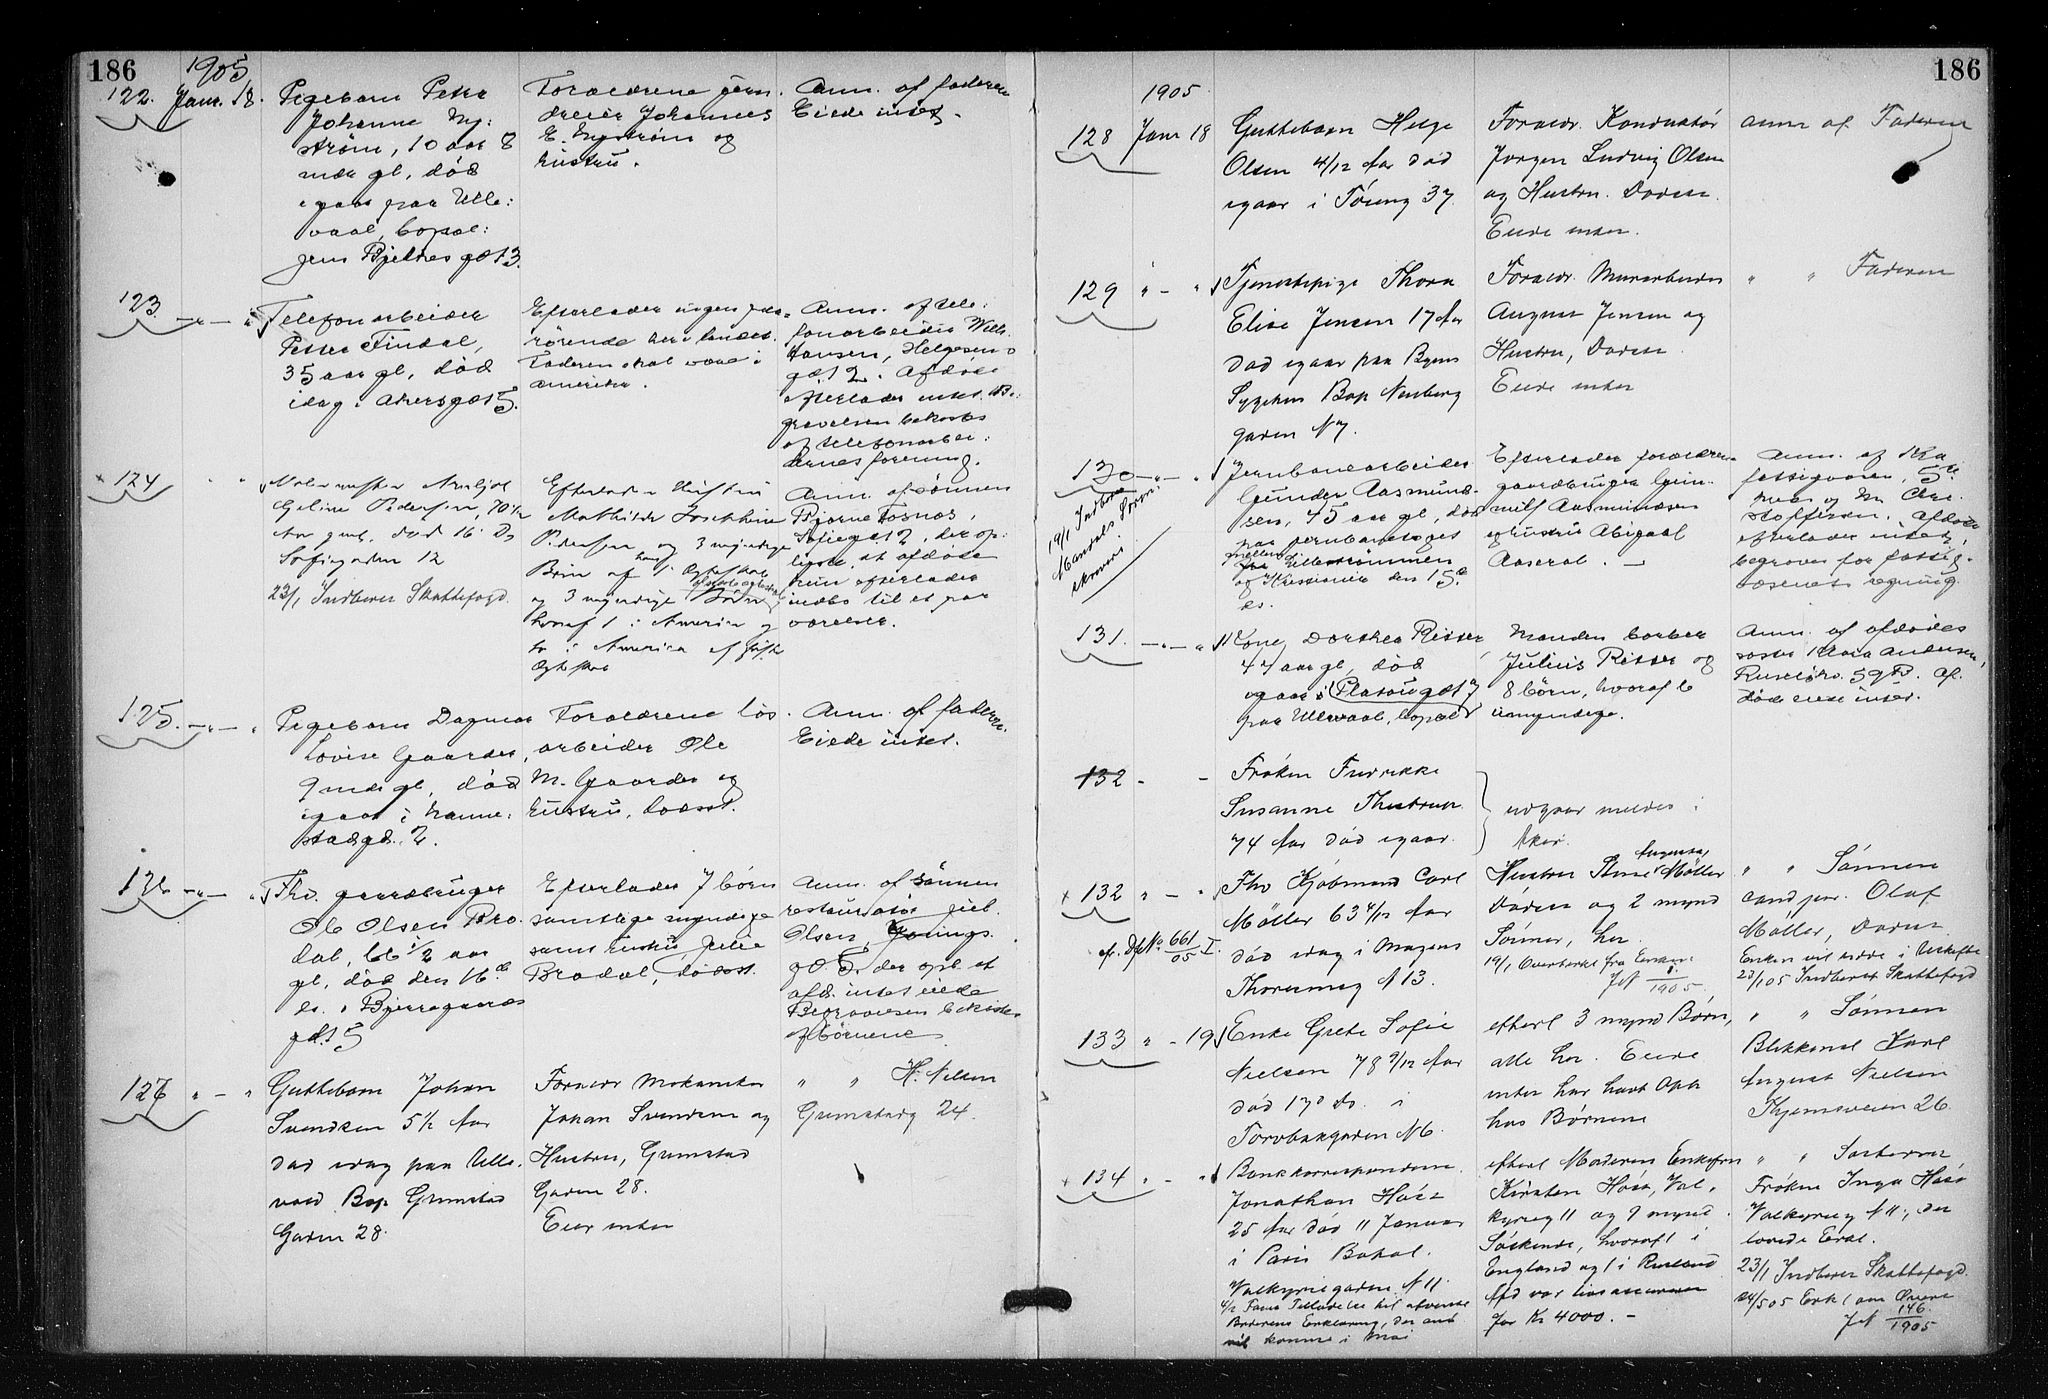 186
1905
122. Janr. 18.
Pigebarn Petra
Johanne Ny:
strøm, 10 aar 8
mdr gl, død
igaar paa Ulle:
vaal, bopæl:
gem Bjelkes gd 13.
Forældrene jern
dreier Johannes
E. Nystrøm og
hustru.
Anm. af faderen
Eiede intet.
123.
Telefonarbeider
Petter Findal,
35 aar gl, død
idag i Akersgd 15.
Efterlader ingen paa
rørende her i landet.
Faderen skal være i
Amerika.
Anm. af tele:
fonarbeider Wilh.
Hansen, Helgesens
gd 12. Afdøde
efterlader intet. Be:
gravelsen bekostes
af telefonarbei:
dernes forening.
+ 124
Malermester
Geline Pedersen, 70 1/2
Aar gml. død 16 Ds
Sofiegaden 12
23/1 Indberet Skattefogd.
Efterlader Hustru
Mathilde Josephine
Pedersen og 3 myndige
Børn af 1ste Ægteskab
og 3 myndige Børn
hvoraf 1 i Amerika og
to i Amerika af første
Ægteskab
Anm. af sønnen
Bjarne Fosnæs,
Sofiegd 12, der op:
lyste, at afdøde
kun efterlader
indbo til et par
værelser.
125.
Pigebarn Dagmar
Lovise Gaarder,
9 mdr gl, død
igaar i Hamme:
stadgd. 2.
Forældrene løs
arbeider Ole
M. Gaarder og
hustru, bosat.
Anm. af faderen.
Eiede intet.
126
Fhv. gaardbruger
Ole Olsen Bro
dal, 66 1/2 aar
gl, død den 16de
ds. i Bjerregaards
gd 15
Efterlader 7 børn
samtlige myndige
samt hustru Julie
Brodal, dødsst.
Anm. af sønnen
restauratør Jul.
Olsen, Youngs
gd. 5, der opl. at
afd. intet eiede
Begravelsen bekostes
af børnene
127
Guttebarn Johan
Svendsen 5 1/2 Aar
død idag paa Ulle.
vold Bop. Grimstad
Gaden 28.
Foræld Mekaniker
Johan Svendsen og
Hustru, Grimstad
Gaden 28.
Eier intet
" " H. Nilsen
Grimstadg 24.
186
1905
128 Janr 18
Guttebarn Helge
Olsen 4/12 Aar død
igaar i Töieng 37
Foræld. Konduktör
Jørgen Ludvig Olsen
og Hustru. Dødsst.
Eiede intet.
Anm af Faderen
129 " - "
Tjenestepige Thora
Elise Jensen 17 Aar
død igaar paa Byens
Sygehus Bop Nordberg
gaden N 7.
Foræld. Murarbeider
August Jensen og
Hustru, Dødsst.
Eiede intet
" " Faderen
130
19/1 Indberet
Mandals Soren
skriveri
Jernbanearbeider
Gunder Aasmund.
sen, 45 aar gl, død
paa jernbanetoget
mellem Lillestrømmen
og Kristiania den 15de
ds.
Efterlader forældrene
gaardbruger Gun
nulf Aasmundsen
og hustru Abigael
Aaseral. —
Anm. af Kra
fattigvæsen, 5te
kreds og Hr. Chri.
stoffersen. Afdøde
efterlader intet,
begraves for fattig.
væsenets regning.
131.
Kone Dorthea Risser
47 aar gl, død
igaar i (Platougd 17
paa Ullevaal, bopæl)
Manden barber
Julius Risser og
8 børn, hvoraf 6
umyndige.
Anm. af afdødes
søster Klara Andersen,
Ruseløkv. 59 B. Af.
døde eiede intet.
132 - -
Frøken Fredrikke
Susanne Thestrup
74 Aar død igaar.
udgaar meldes i
Aker.
+ 132 " - "
cf. Df. No. 661/05 I
Fhv Kjøbmand Carl
Möller 63 4/12 Aar
død idag i Magnus
Thorsensg N 13.
Hustru Stine Augusta Möller
Dødsst og 2 mynd
Sönner, her.
19/1 Overtaket fra Enken
Jf 1/1905.
" " Sönnen
cand jur. Olaf
Möller, Dødsst
Enken vil sidde i Uskifte
23/1 05 Indberet Skattefogd
133 " - 19
Enke Grete Sofie
Nielsen 78 9/12 Aar
død 17de Ds. i
Torvbakgaden N 6.
efterl 3 mynd Børn,
alle her. Eiede
intet har havt Oph
hos Børnene
" " Sönnen
Blikkensl Karl
August Nielsen
Kjemsveien 26
+ 134 " - "
Bankkorrespondent
Jonathan Høst
25 Aar død 11 Januar
i Paris Bopæl.
Valkyriegaden N 11
4/2 Faaet Tilladelse til afvente
Broderens Erklæring, der først
vil komme i Mai
efterl Moderen Enkefru
Kirsten Høst, Val.
kyrieg 11 og 9 mynd
Søskende, hvoraf 1 i
England og 1 i Rusland
Afd var livsassureret
for Kr 4000. —
" " Søsteren
Frøken Inga Høst
Valkyrieg N 11, der
lovede Erkl.
23/1 Indberet Skattefogd.
24/5 05 Erkl om Overt
Jf 146/1905